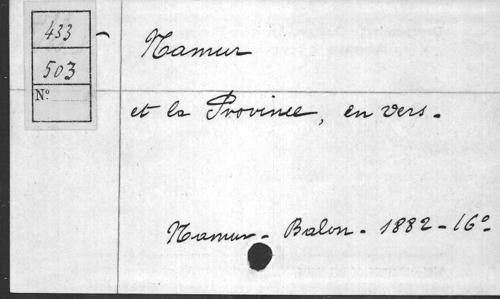 433
503
Nº
Namur
et la Province, en vers.
Namur - Balon - 1882 - 16º